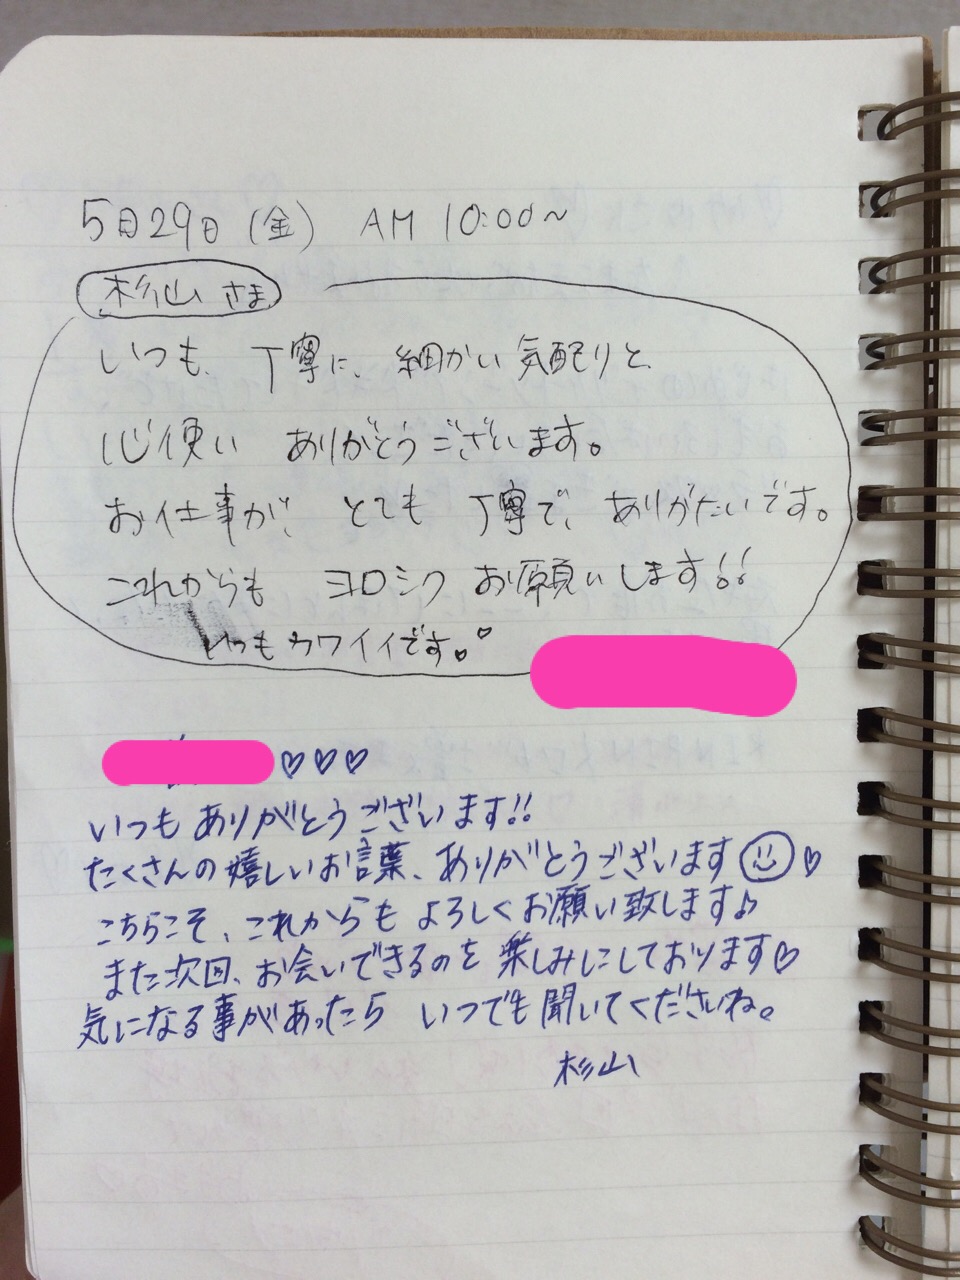 5月29日(金) AM 10:00~
杉山 さま
いつも、丁寧に、細かい気配りと、
心使い ありがとうございます。
お仕事が、とても 丁寧で、ありがたいです。
これからも ヨロシク お願いします!!
いつもカワイイです。♡
♡♡♡
いつもありがとうございます!!
たくさんの嬉しいお言葉、ありがとうございます☺♡
こちらこそ、これからもよろしくお願い致します♪
また次回、お会いできるのを楽しみにしております♡
気になる事があったら いつでも聞いてくださいね。
杉山